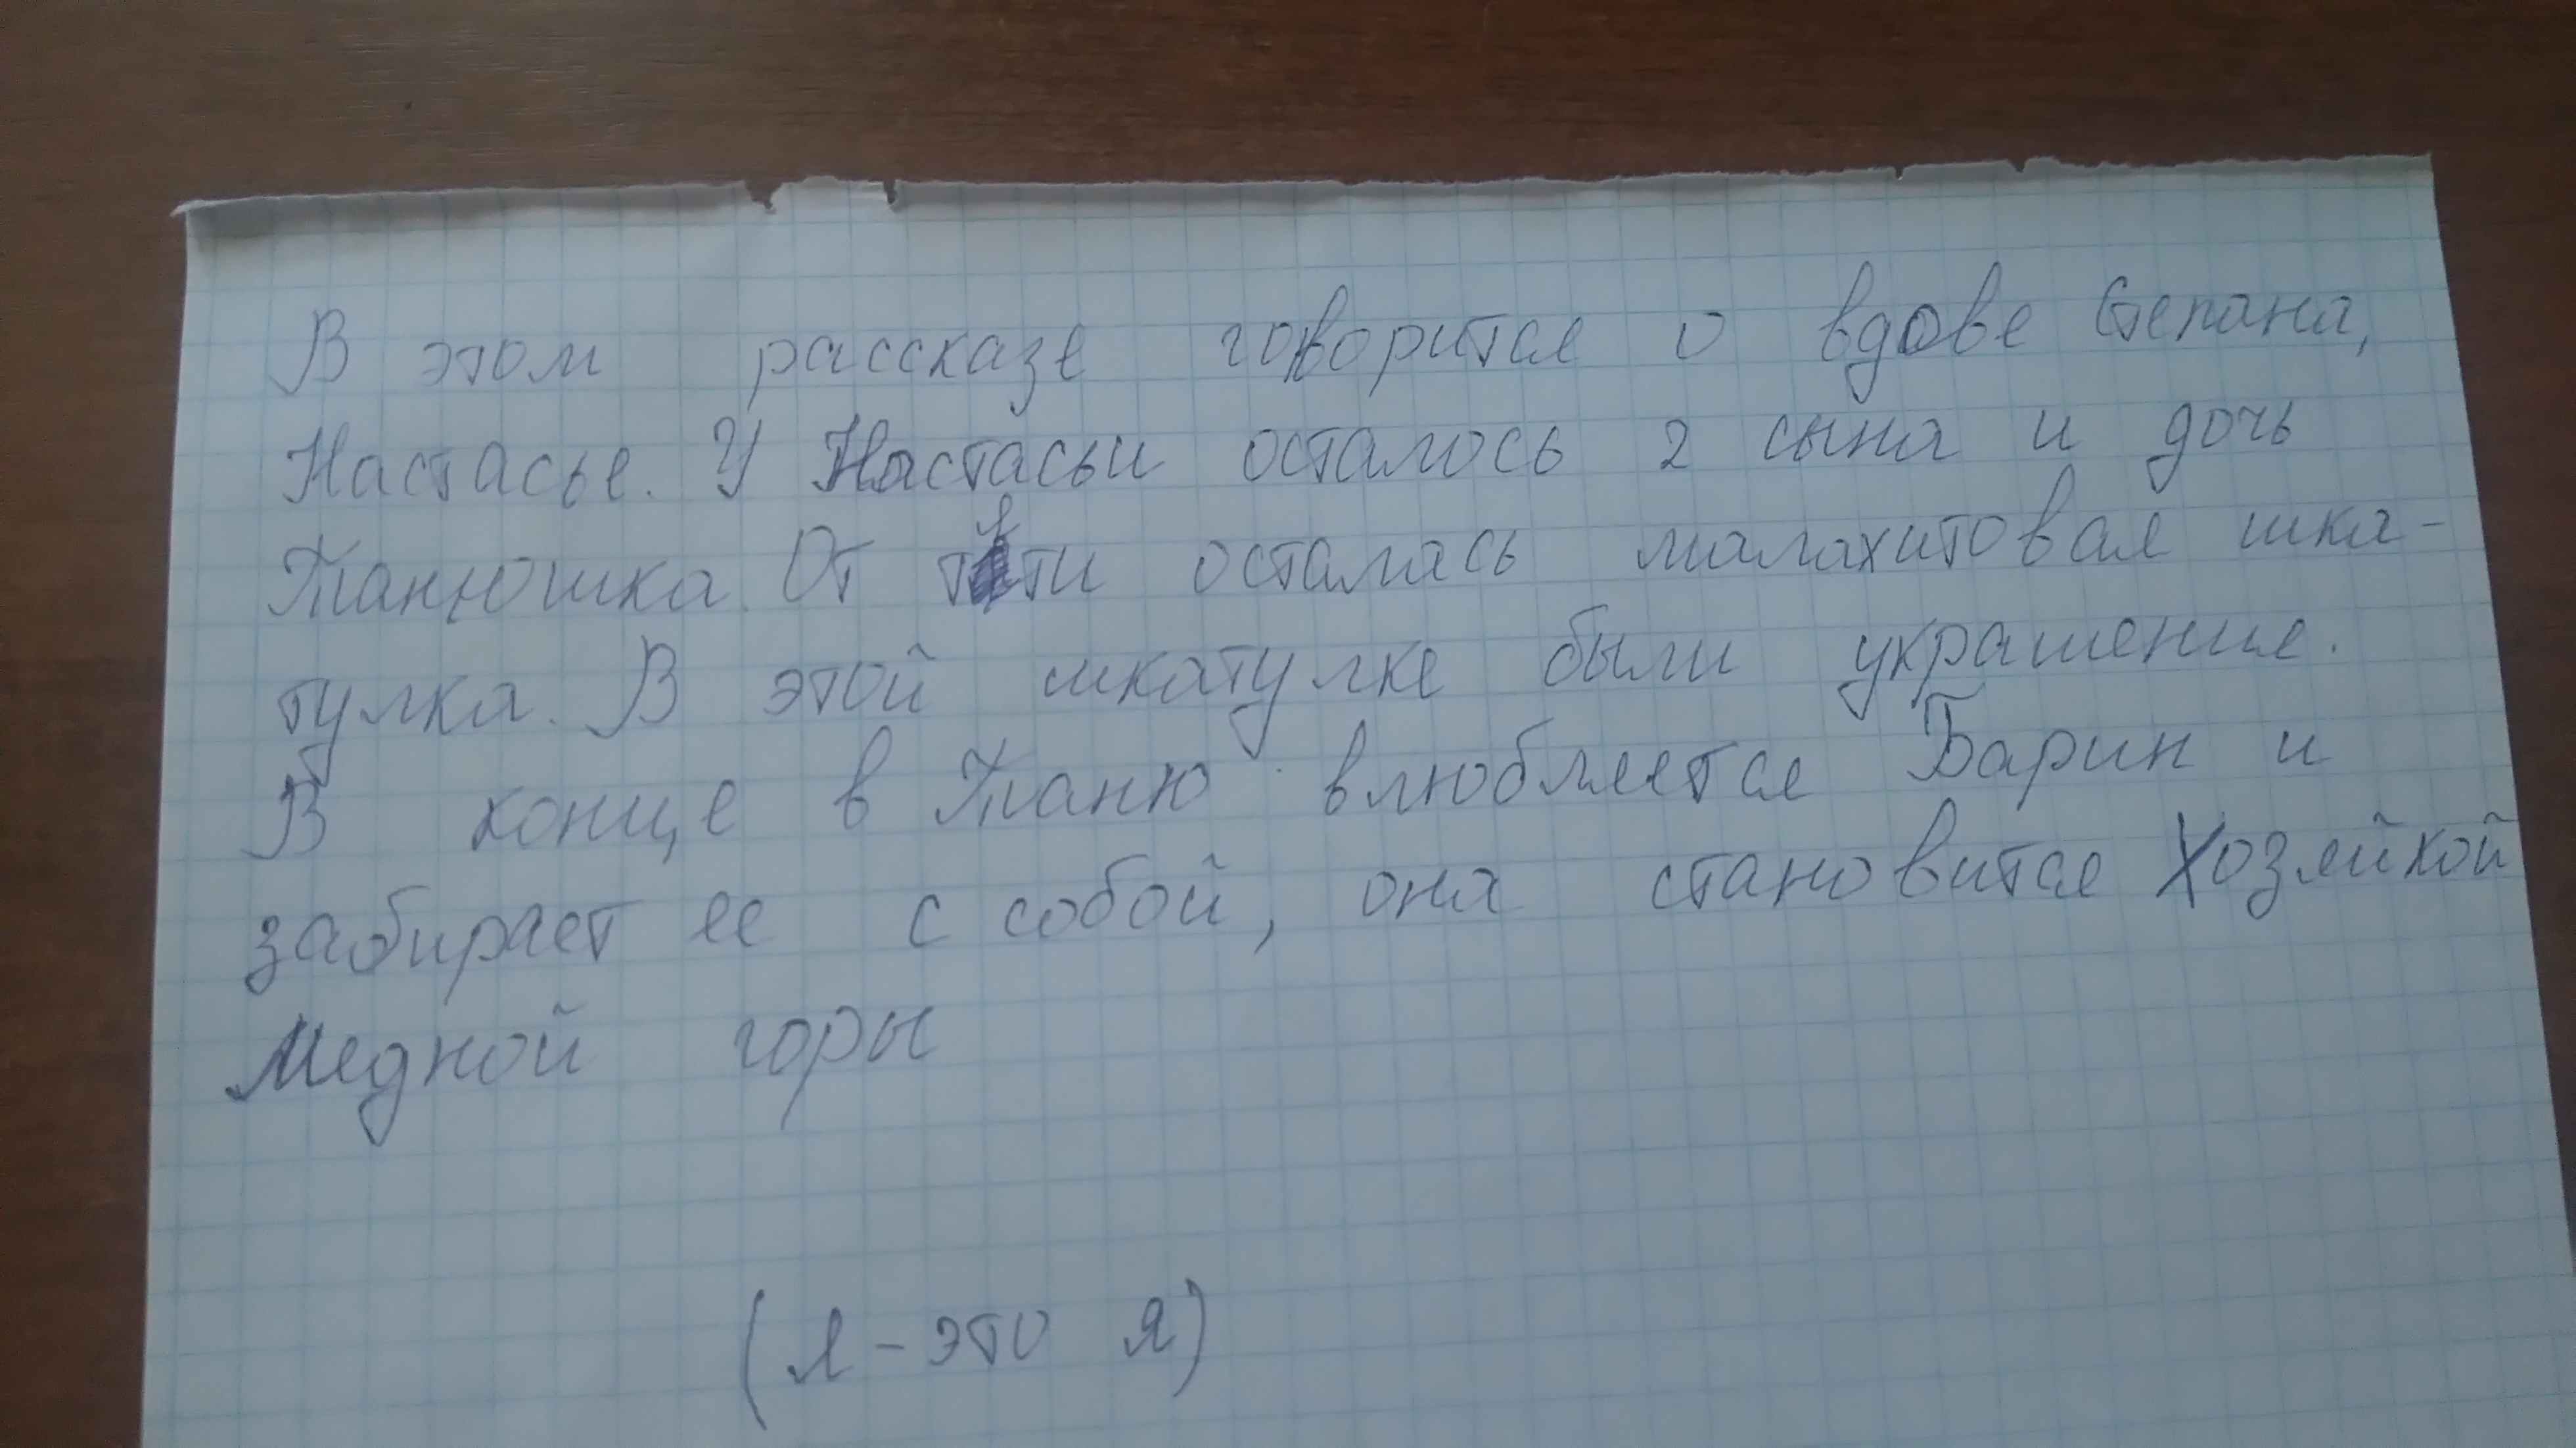 В этом рассказе говорится о вдове Степана,
Настасье. У Настасьи осталось 2 сына и дочь
Танюшка. От тяти осталась малахитовая шка-
тулка. В этой шкатулке были украшение.
В конце в Таню влюбляется Барин и
забирает ее с собой, она становится Хозяйкой
Медной горы
(я - это я)